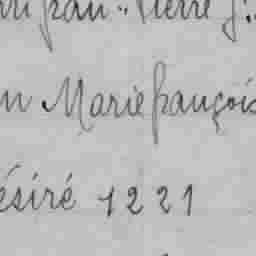 Pierre J.
Marie françois
ésiré 1221